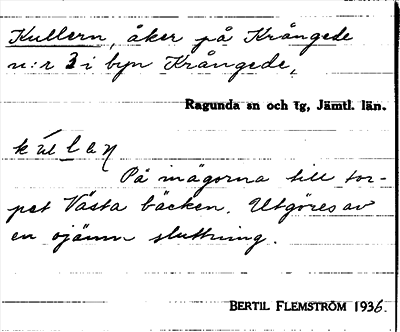 Kullern, åker på Krångede
n:r 3 i byn Krångede,
Ragunda sn och tg, Jämtl. län.
På inägorna till tor-
pet Västa bäcken. Utgöres av
en ojämn sluttning.
BERTIL FLEMSTRÖM 1936.